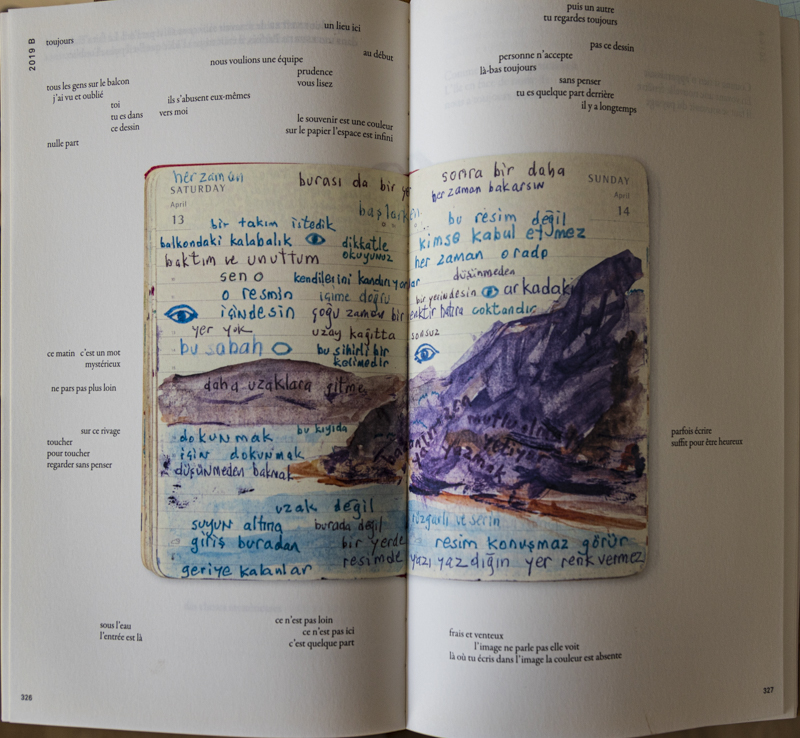 2019 B
toujours
un lieu ici
au début
nous voulions une équipe
prudence
vous lisez
tous les gens sur le balcon
j'ai vu et oublié
ils s'abusent eux-mêmes
toi
tu es dans
vers moi
ce dessin
le souvenir est une couleur
sur le papier l'espace est infini
nulle part
puis un autre
tu regardes toujours
pas ce dessin
personne n'accepte
là-bas toujours
sans penser
tu es quelque part derrière
il y a longtemps
her zaman
SATURDAY
April
13
burası da bir ye
başlarken
bir takım istedik
balkondaki kalabalık
dikkatle
okuyunuz
baktım ve unuttum
sen o
kendilerini kandırıyorlar
o resmin
içime doğru
içindesin
çoğu zaman bir renktir hatıra
yer yok
uzay kağıtta
sonsuz
bu sabah
bu sihirli bir
kelimedir
daha uzaklara gitme
bu kıyıda
dokunmak
için dokunmak
düşünmeden bakmak
uzak değil
suyun altına
burada değil
giriş buradan
bir yerde
geriye kalanlar
resimde
sonra bir daha
SUNDAY
April
14
her zaman bakarsın
bu resim değil
kimse kabul etmez
her zaman orada
düşünmeden
bir yerindesin
arkadaki
çoktandır
mutlu olmaya
yetiyor
yazmak
rüzgarlı ve serin
resim konuşmaz görür
yazı yazdığın yer renk vermez
ce matin c'est un mot
mystérieux
ne pars pas plus loin
sur ce rivage
toucher
pour toucher
regarder sans penser
parfois écrire
suffit pour être heureux
sous l'eau
l'entrée est là
ce n'est pas loin
ce n'est pas ici
c'est quelque part
frais et venteux
l'image ne parle pas elle voit
là où tu écris dans l'image la couleur est absente
326
327